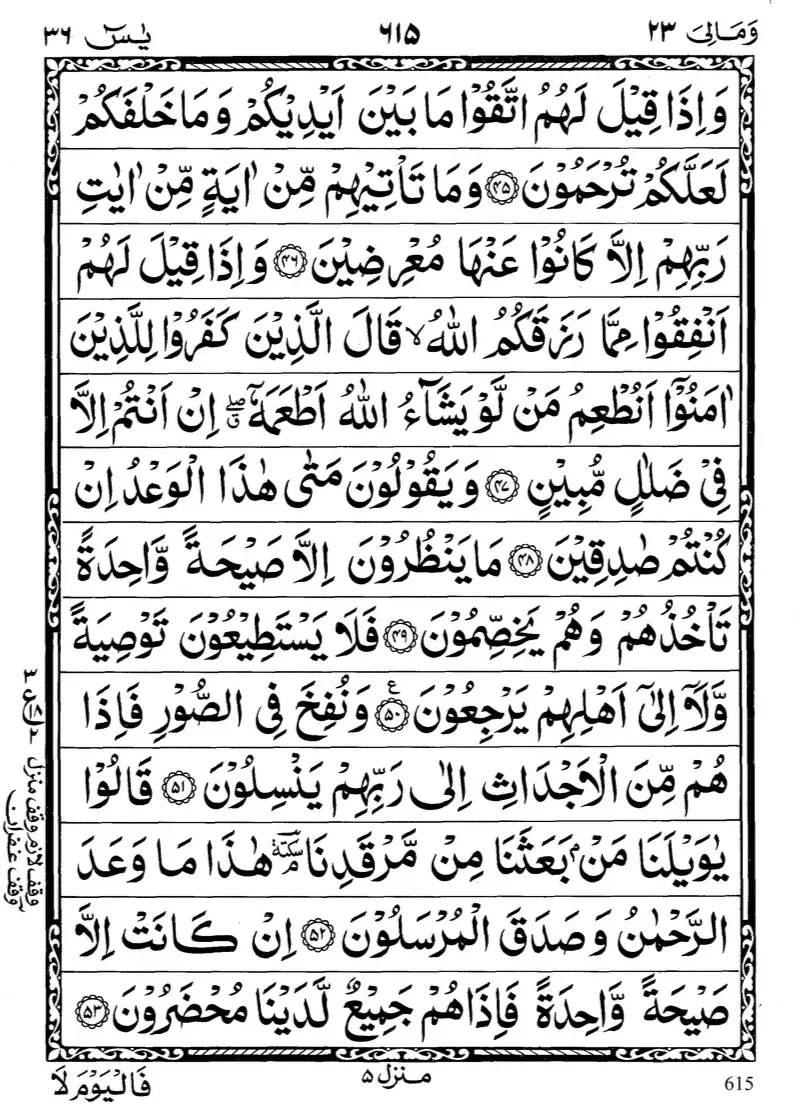 وَمَالِیَ ٢٣ ٦١۵ یٰسٓ ٣٦
وَاِذَا قِيْلَ لَهُمُ اتَّقُوْا مَا بَيْنَ اَيْدِيْكُمْ وَمَا خَلْفَكُمْ
لَعَلَّكُمْ تُرْحَمُوْنَ ۴۵ وَمَا تَاْتِيْهِمْ مِّنْ اٰيَةٍ مِّنْ اٰيٰتِ
رَبِّهِمْ اِلَّا كَانُوْا عَنْهَا مُعْرِضِيْنَ ۴۶ وَاِذَا قِيْلَ لَهُمْ
اَنْفِقُوْا مِمَّا رَزَقَكُمُ اللّٰهُ ۙ قَالَ الَّذِيْنَ كَفَرُوْا لِلَّذِيْنَ
اٰمَنُوْۤا اَنُطْعِمُ مَنْ لَّوْ يَشَآءُ اللّٰهُ اَطْعَمَهٗۤ ۖ اِنْ اَنْتُمْ اِلَّا
فِيْ ضَلٰلٍ مُّبِيْنٍ ۴۷ وَيَقُوْلُوْنَ مَتٰى هٰذَا الْوَعْدُ اِنْ
كُنْتُمْ صٰدِقِيْنَ ۴۸ مَا يَنْظُرُوْنَ اِلَّا صَيْحَةً وَّاحِدَةً
تَاْخُذُهُمْ وَهُمْ يَخِصِّمُوْنَ ۴۹ فَلَا يَسْتَطِيْعُوْنَ تَوْصِيَةً
وَّلَاۤ اِلٰۤى اَهْلِهِمْ يَرْجِعُوْنَ ۵۰ ع وَنُفِخَ فِي الصُّوْرِ فَاِذَا
هُمْ مِّنَ الْاَجْدَاثِ اِلٰى رَبِّهِمْ يَنْسِلُوْنَ ۵۱ قَالُوْا
يٰوَيْلَنَا مَنْۢ بَعَثَنَا مِنْ مَّرْقَدِنَا ۘ سكتة هٰذَا مَا وَعَدَ
الرَّحْمٰنُ وَصَدَقَ الْمُرْسَلُوْنَ ۵۲ اِنْ كَانَتْ اِلَّا
صَيْحَةً وَّاحِدَةً فَاِذَا هُمْ جَمِيْعٌ لَّدَيْنَا مُحْضَرُوْنَ ۵۳
وقف لازم وقف منزل
وقف غفران
منزل ۵
فَالْيَوْمَ لَا
615